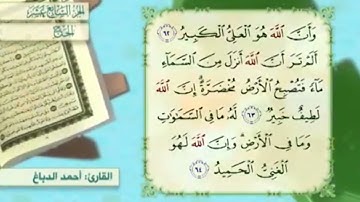 الجزء السابع عشر
الحج
وَأَنَّ ٱللَّهَ هُوَ ٱلْعَلِىُّ ٱلْكَبِيرُ ٦٢
أَلَمْ تَرَ أَنَّ ٱللَّهَ أَنزَلَ مِنَ ٱلسَّمَآءِ
مَآءً فَتُصْبِحُ ٱلْأَرْضُ مُخْضَرَّةً إِنَّ ٱللَّهَ
لَطِيفٌ خَبِيرٌ ٦٣ لَّهُۥ مَا فِى ٱلسَّمَٰوَٰتِ
وَمَا فِى ٱلْأَرْضِ وَإِنَّ ٱللَّهَ لَهُوَ
ٱلْغَنِىُّ ٱلْحَمِيدُ ٦٤
القارئ: أحمد الدباغ